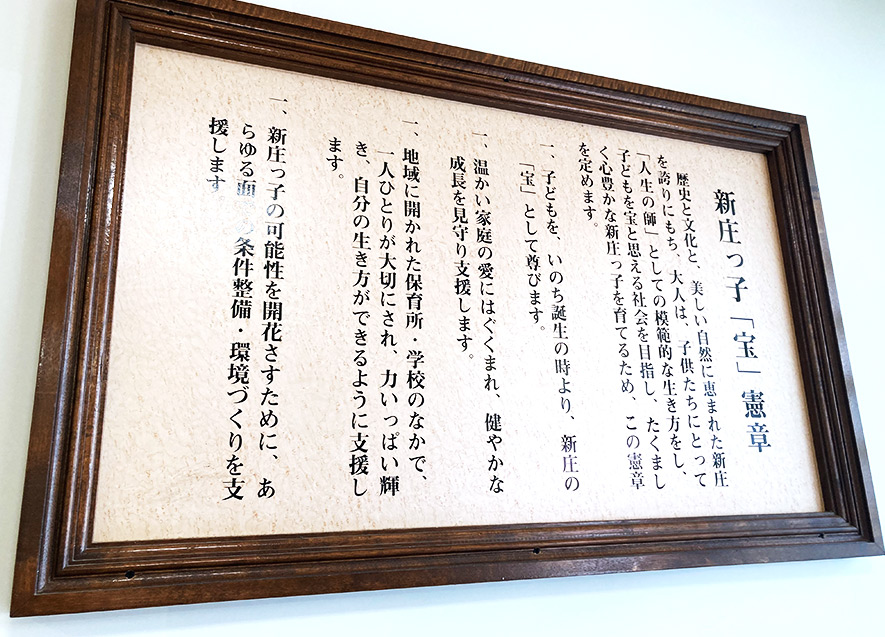 新庄っ子「宝」憲章
歴史と文化と、美しい自然に恵まれた新庄
を誇りにもち、大人は、子供たちにとって
「人生の師」としての模範的な生き方をし、
子どもを宝と思える社会を目指し、たくまし
く心豊かな新庄っ子を育てるため、この憲章
を定めます。
一、子どもを、いのち誕生の時より、新庄の
「宝」として尊びます。
一、温かい家庭の愛にはぐくまれ、健やかな
成長を見守り支援します。
一、地域に開かれた保育所・学校のなかで、
一人ひとりが大切にされ、力いっぱい輝
き、自分の生き方ができるように支援し
ます。
一、新庄っ子の可能性を開花さすために、あ
らゆる面 条件整備・環境づくりを支
援します